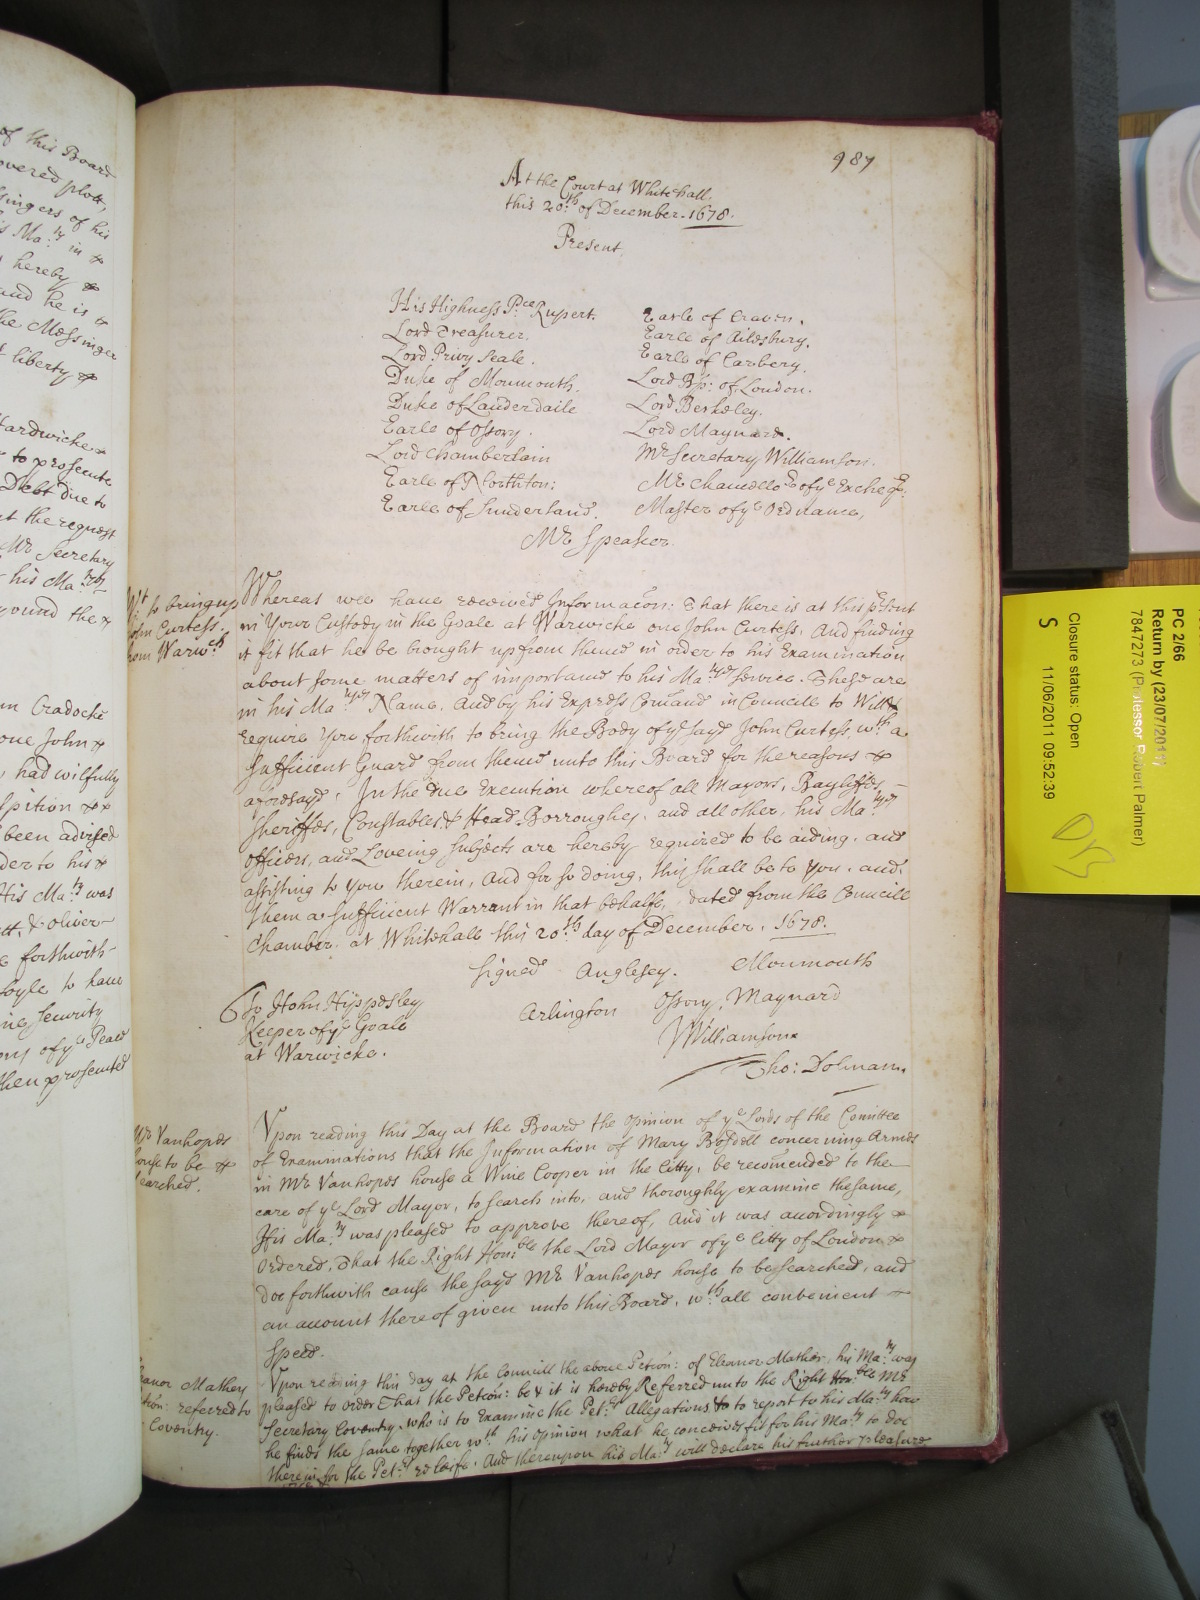 of this Board
overed plott,
singers of his
is Ma:ty in &
hereby &
and he is &
the Messinger
liberty &
Hardwicke &
to prosecute
Debt due to
at the request
Mr Secretary
his Ma:tys
round the &
Cradocke
one John &
had wilfully
spition &
been advised
der to his &
His Ma:ty was
& Oliver
forthwith
Foyle to have
Security
ye Peace
then prosecuted
987
At the Court at Whitehall,
this 20:th of December. 1678.
Present,
His Highness P:ce Rupert. Earle of Craven.
Lord Treasurer. Earle of Ailesbury.
Lord Privy Seale. Earle of Carbery.
Duke of Monmouth. Lord Bp: of London.
Duke of Lauderdaile Lord Berkeley.
Earle of Ossory. Lord Maynard.
Lord Chamberlain Mr Secretary Williamson.
Earle of Northton: Mr Chancellor of ye Excheqr.
Earle of Sunderland. Master of ye Ordnance,
Mr Speaker.
Wt to bring up
John Curtess.
from Warwch
Whereas wee have received Informacon: That there is at this present
in Your Custody in the Goale at Warwicke one John Curtess, And finding
it fit that he be bought up from thence in order to his Examination
about some matters of importance to his Ma:tys Service. These are
in his Ma:tys Name, and by his Express Comand in Councile to Will &
require You forthwith to bring the Body of ye sayd John Curtess, wth a
sufficient Guard from thence unto this Board for the reasons &
aforesayd. In the due Execution whereof all Mayors, Bayliffes,
Sheriffes, Constables & Head-Borroughes, and all other, his Ma:tys
officers, and Loveing Subjects are hereby required to be aiding, and
assisting to You therein, And for so doing, this shall be to You, and
them a sufficient Warrant in that behalfe, dated from the Councill
Chamber at Whitehall this 20th day of December, 1678.
Signed Anglesey. Monmouth
Arlington Ossory, Maynard
Williamson
Tho: Dolman.
To John Hippesley
Keeper of ye Goale
at Warwicke.
Mr Vanhopes
house to be &
searched.
Upon reading this Day at the Board the Opinion of ye Lords of the Comittee
of Examinations that the Information of Mary concerning Armes
in Mr Vanhopes house a Wine Cooper in the Citty, be recomended to the
care of ye Lord Mayor, to search into, and thoroughly examine the same,
His Ma:ty was pleased to approve thereof, And it was accordingly &
Ordered, That the Right Hon:ble the Lord Mayor of ye Citty of London &
doe forthwith cause the sayd Mr Vanhopes house to be searched, and
an account thereof given unto this Board, wth all convenient
Speed.
Eleanor Mathey
Petition: referred to
Coventry.
Upon reading this day at the Councill the above Peticon: of Eleanor Mather, his Ma:ty was
pleased to order that the Peticon: be & it is hereby Referred unto the Right Hon:ble Mr
Secretary Coventry, who is to Examine the Pet:rs Allegations, & to report to his Ma:ty how
he finds the same together wth his opinion what he conceives fit for his Ma:ty to doe
therein for the Pet:rs releife. And thereupon his Ma:ty will declare his further pleasure
PC 2/66
Return by (23/07/2011)
7847273 (Professor Robert Palmer)
Closure status: Open
11/06/2011 09:52:39
S